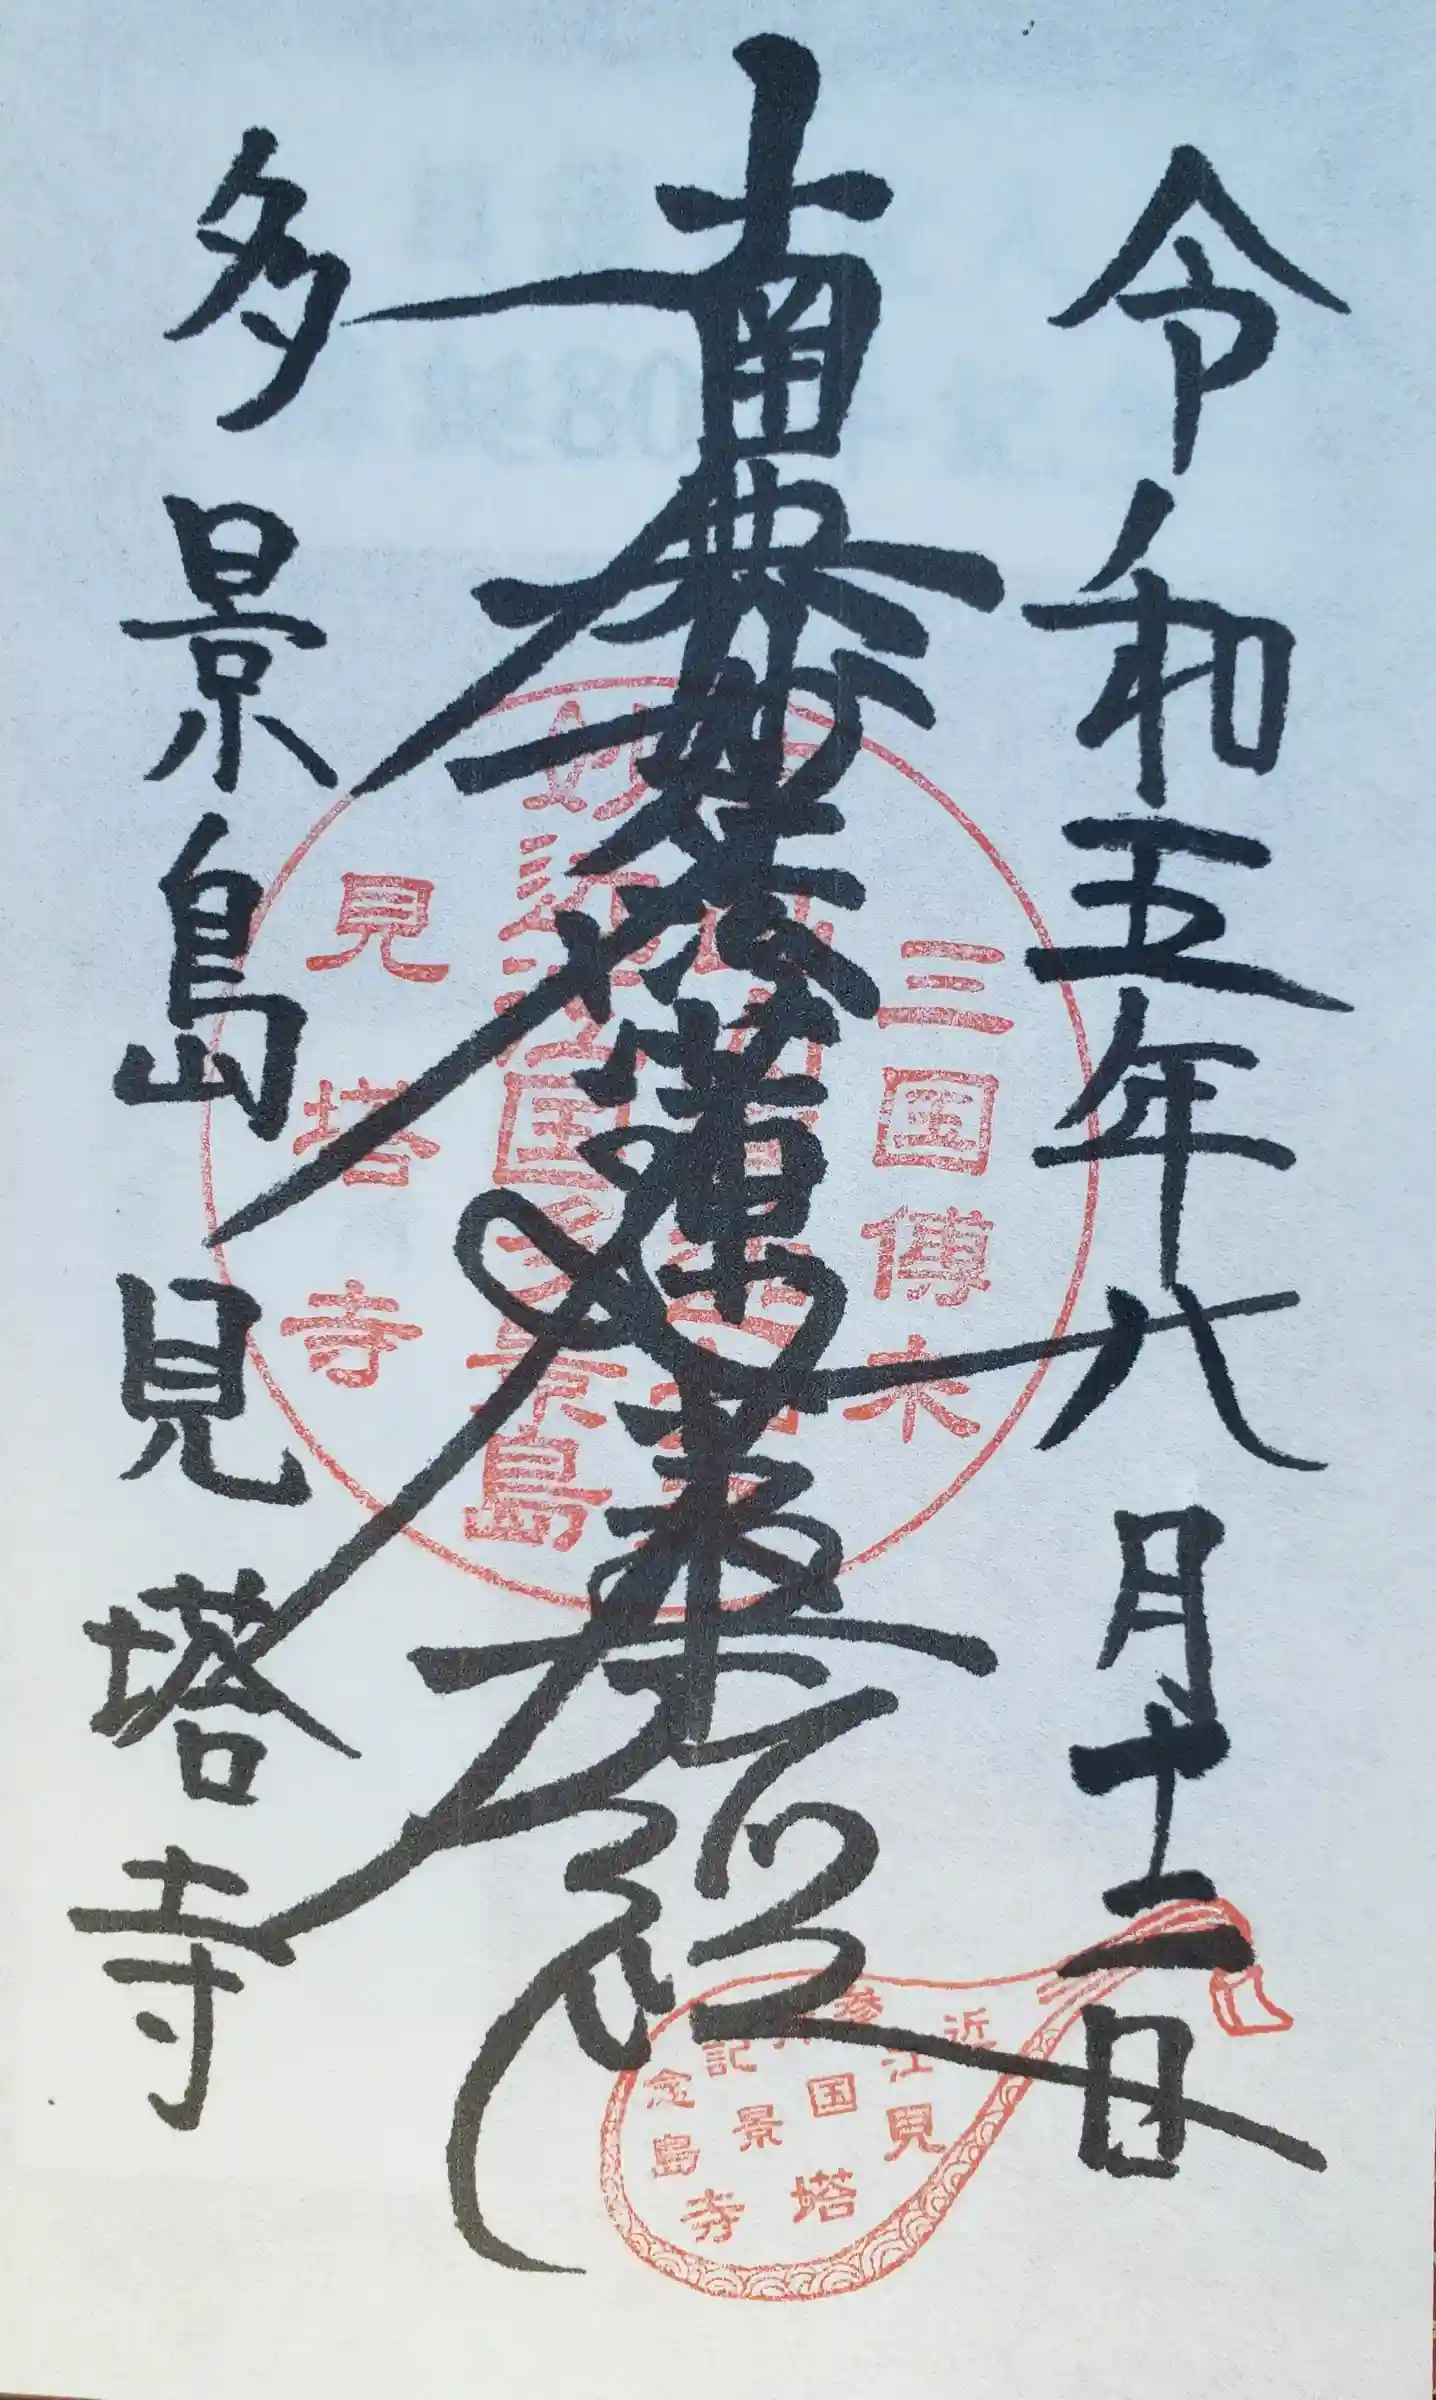 令和五年八月十二日
南無妙法蓮華経
多景島見塔寺
三国傳来
近江国多景島
見塔寺
近江国
見塔寺
景島